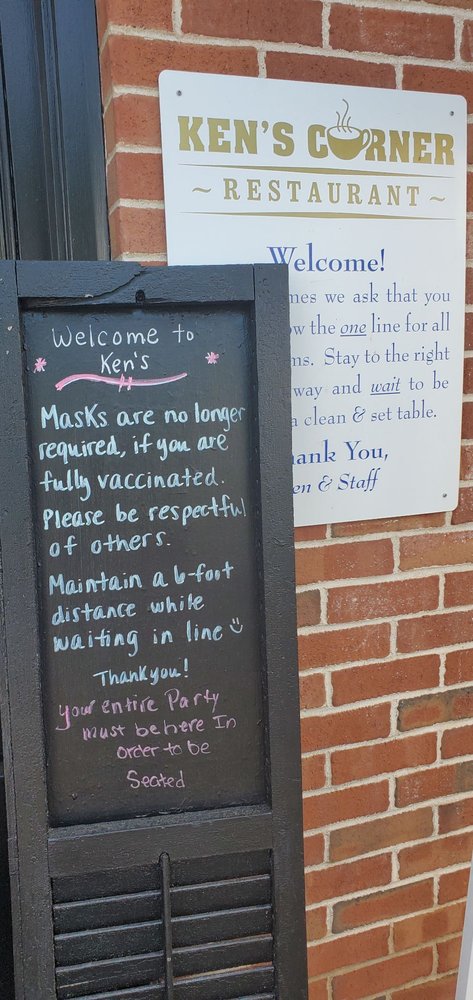 KEN'S CORNER
~ RESTAURANT ~
Welcome!
mes we ask that you
the one line for all
Stay to the right
way and wait to be
a clean & set table.
ank You,
en & Staff
Welcome to
Ken's
Masks are no longer
required, if you are
fully vaccinated.
Please be respectful
of others.
Maintain a 6-foot
distance while
waiting in line
Thank you!
your entire Party
must be here In
order to be
Seated